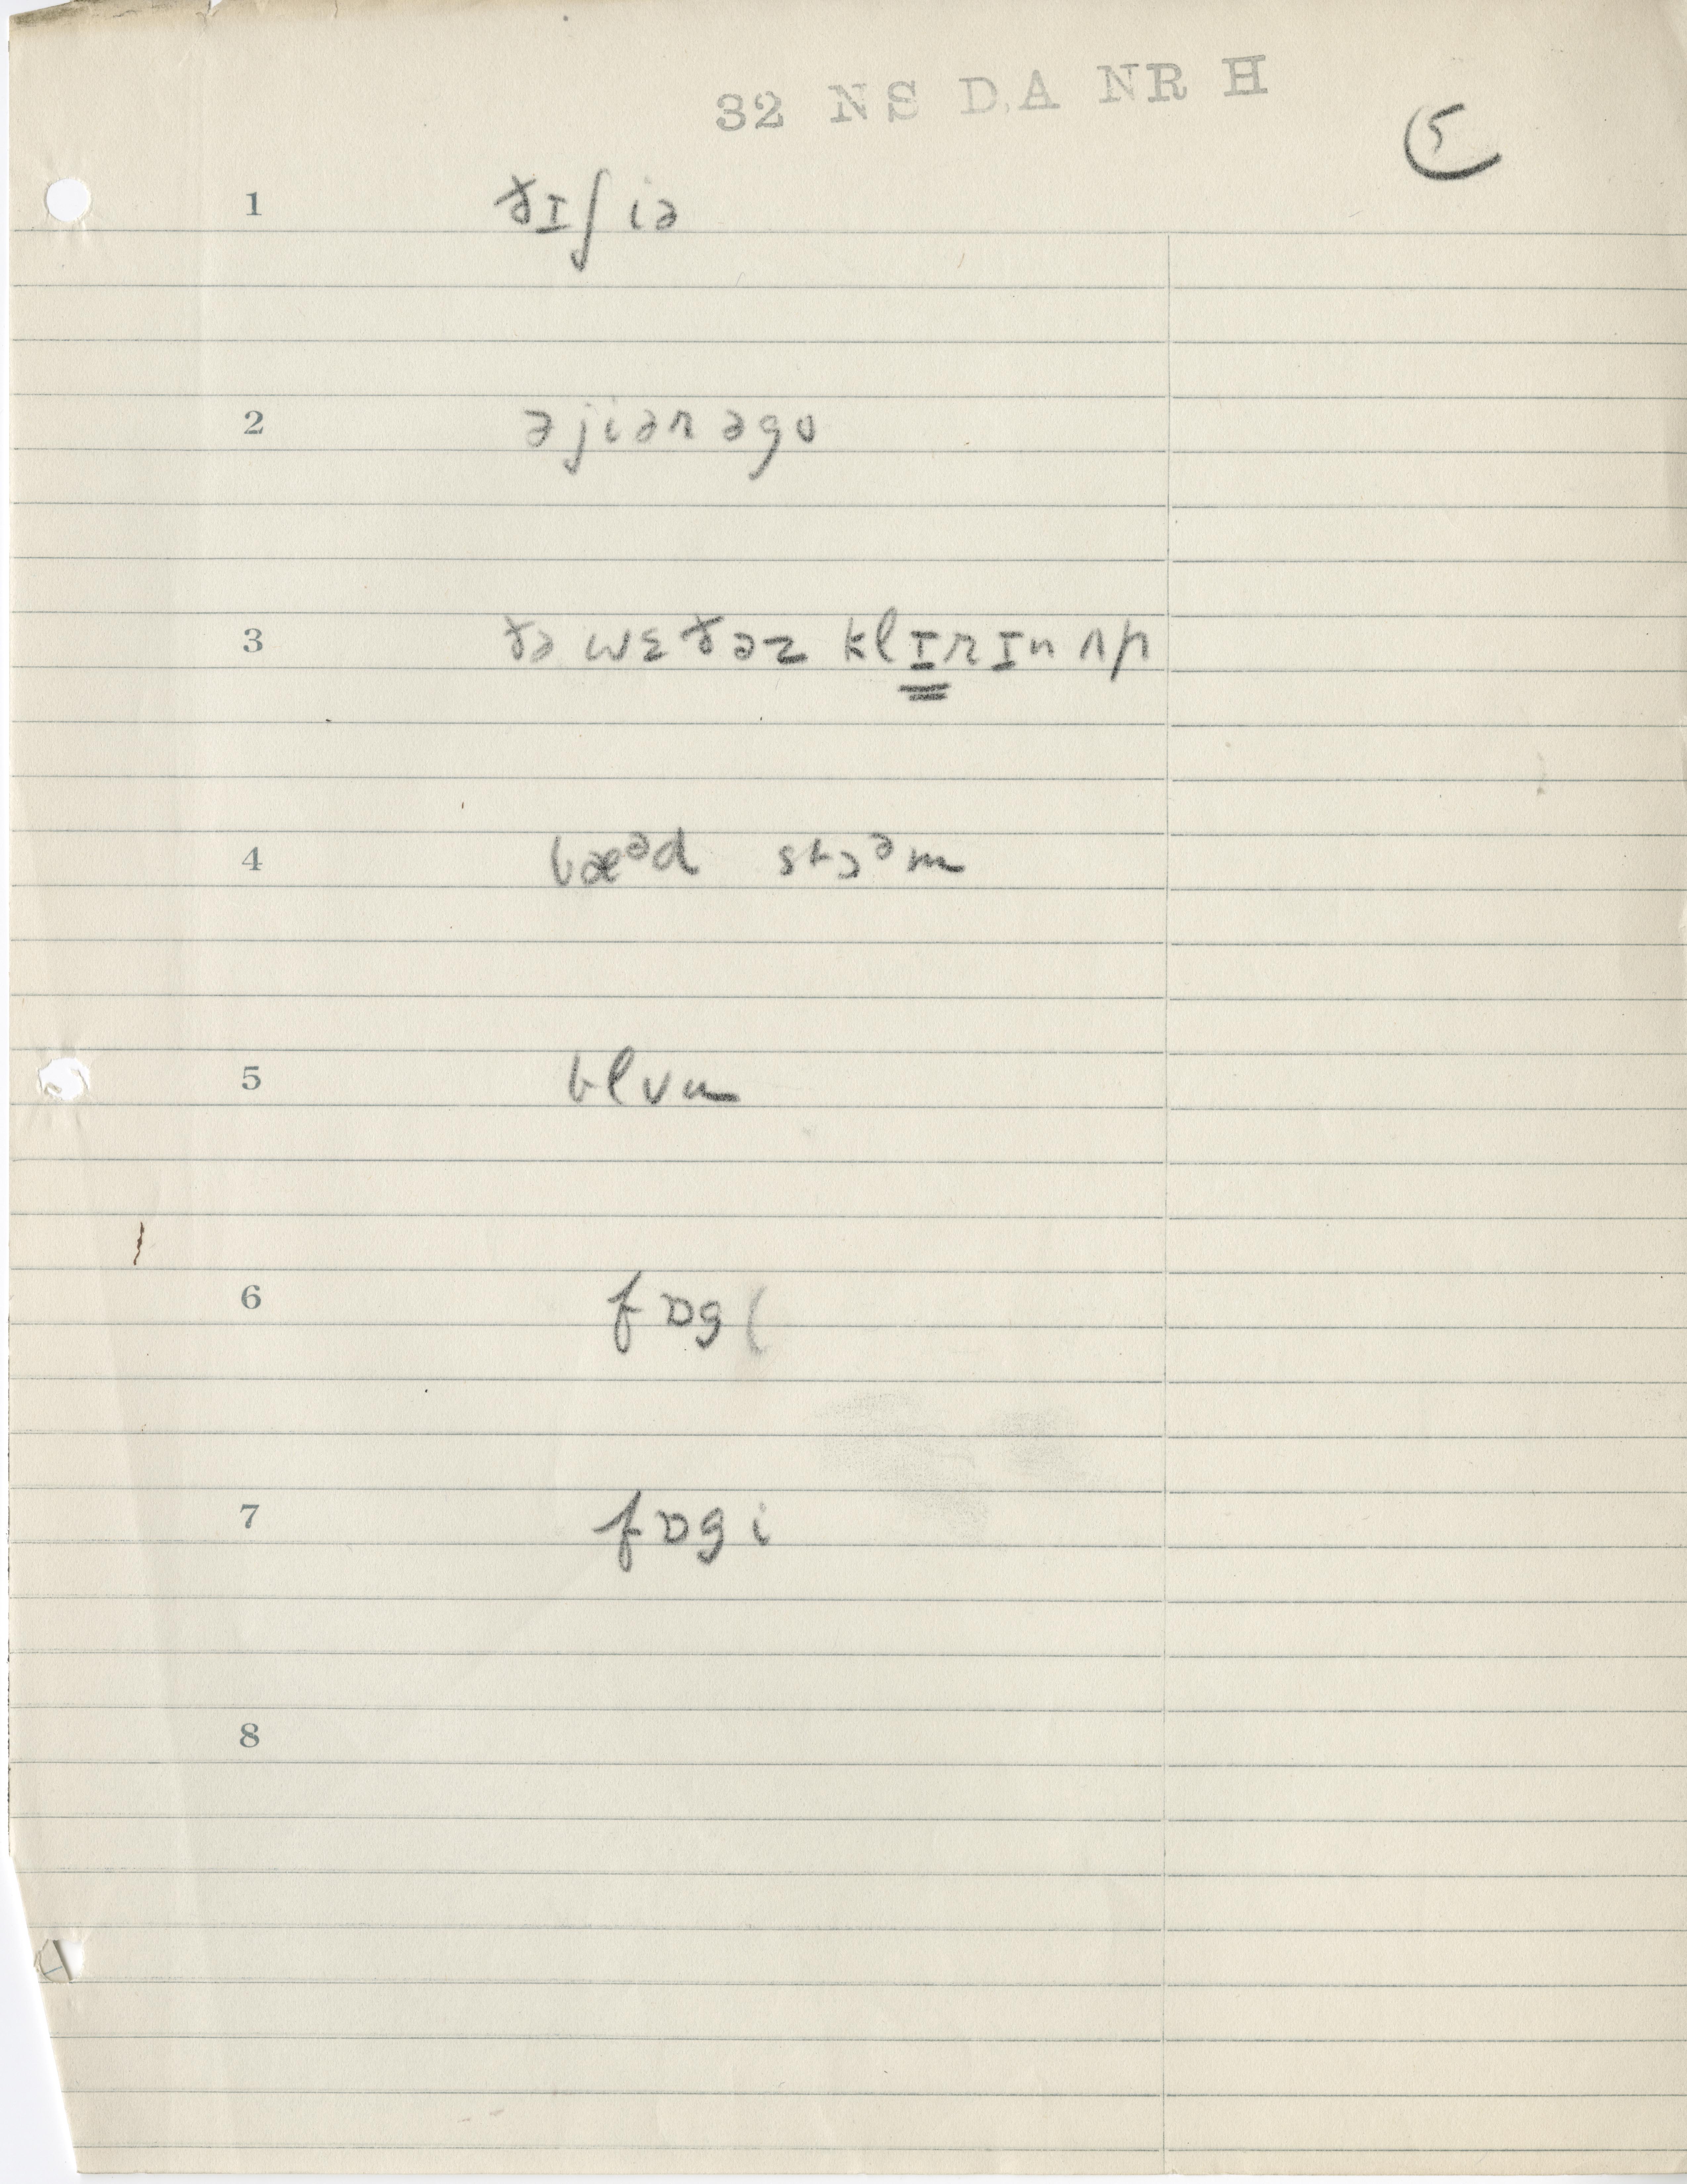 32 NS D.A NR H
5
1 ðɪʃiə
2 əjiəɹəgo
3 ðə wɛðəz klɪɹɪn ʌp
4 bæᵊd stɔᵊm
5 blʋm
6 fɒg
7 fɒgi
8